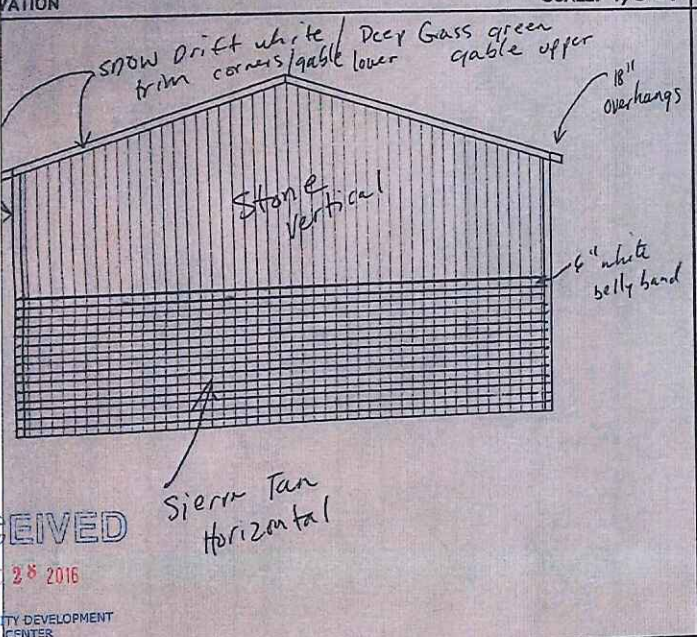 VATION
SNOW Drift white / Deep Gass green
trim corners/gable lower gable upper
18"
overhangs
Stone
vertical
6" white
belly band
Sierra Tan
Horizontal
CEIVED
28 2016
TY DEVELOPMENT
CENTER